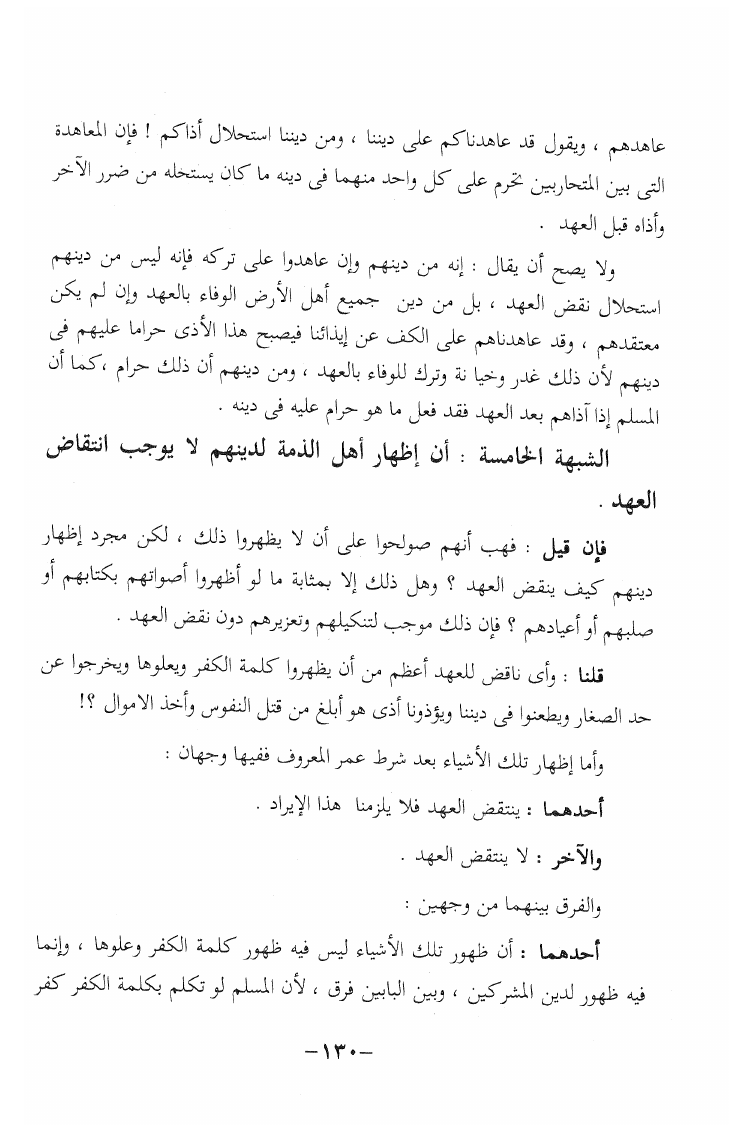 عاهدهم ، ويقول قد عاهدناكم على ديننا ، ومن ديننا استحلال أذاكم ! فإن المعاهدة
التى بين المتحاربين تحرم على كل واحد منهما فى دينه ما كان يستحله من ضرر الآخر
وأذاه قبل العهد .
ولا يصح أن يقال : إنه من دينهم وإن عاهدوا على تركه فإنه ليس من دينهم
استحلال نقض العهد ، بل من دين جميع أهل الأرض الوفاء بالعهد وإن لم يكن
معتقدهم ، وقد عاهدناهم على الكف عن إيذائنا فيصبح هذا الأذى حراما عليهم فى
دينهم لأن ذلك غدر وخيا نة وترك للوفاء بالعهد ، ومن دينهم أن ذلك حرام ،كما أن
المسلم إذا آذاهم بعد العهد فقد فعل ما هو حرام عليه فى دينه .
الشبهة الخامسة : أن إظهار أهل الذمة لدينهم لا يوجب انتقاض
العهد .
فإن قيل : فهب أنهم صولحوا على أن لا يظهروا ذلك ، لكن مجرد إظهار
دينهم كيف ينقض العهد ؟ وهل ذلك إلا بمثابة ما لو أظهروا أصواتهم بكتابهم أو
صلبهم أو أعيادهم ؟ فإن ذلك موجب لتنكيلهم وتعزيرهم دون نقض العهد .
قلنا : وأى ناقض للعهد أعظم من أن يظهروا كلمة الكفر ويعلوها ويخرجوا عن
حد الصغار ويطعنوا فى ديننا ويؤذونا أذى هو أبلغ من قتل النفوس وأخذ الاموال ؟!
وأما إظهار تلك الأشياء بعد شرط عمر المعروف ففيها وجهان :
أحدهما : ينتقض العهد فلا يلزمنا هذا الإيراد .
والآخر : لا ينتقض العهد .
والفرق بينهما من وجهين :
أحدهما : أن ظهور تلك الأشياء ليس فيه ظهور كلمة الكفر وعلوها ، وإنما
فيه ظهور لدين المشركين ، وبين البابين فرق ، لأن المسلم لو تكلم بكلمة الكفر كفر
–١٣٠–